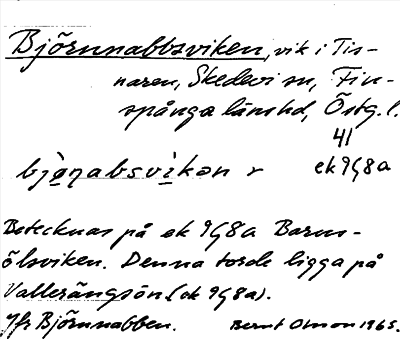 Björnnabbsviken, vik i Tis-
naren, Skedevi sn, Fin-
spånga länshd, Östg. l.
41
bjǫ̀ṇabsvìkən r ek 9G8a
Betecknas på ek 9G8a Barns-
ölsviken. Denna torde ligga på
Vallerängsön (ek 9G8a).
Jfr Björnnabben. Bernt Olson 1965.